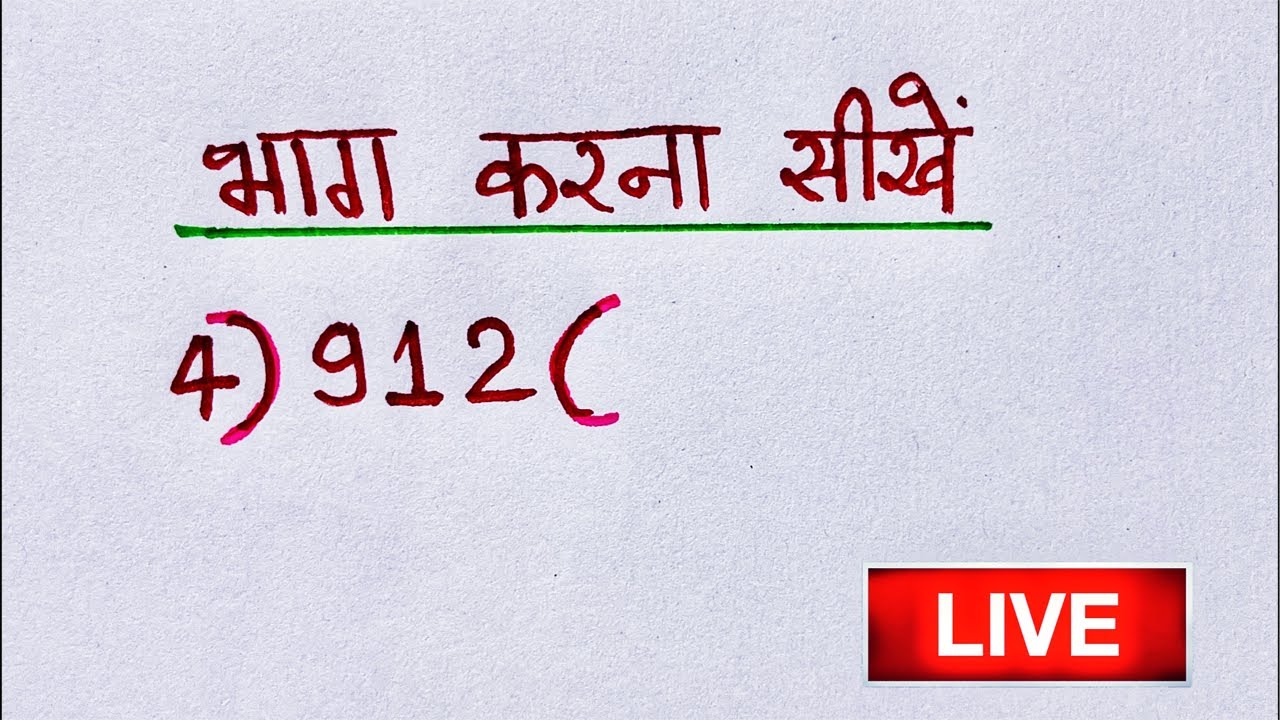 भाग करना सीखें
4)912(
LIVE